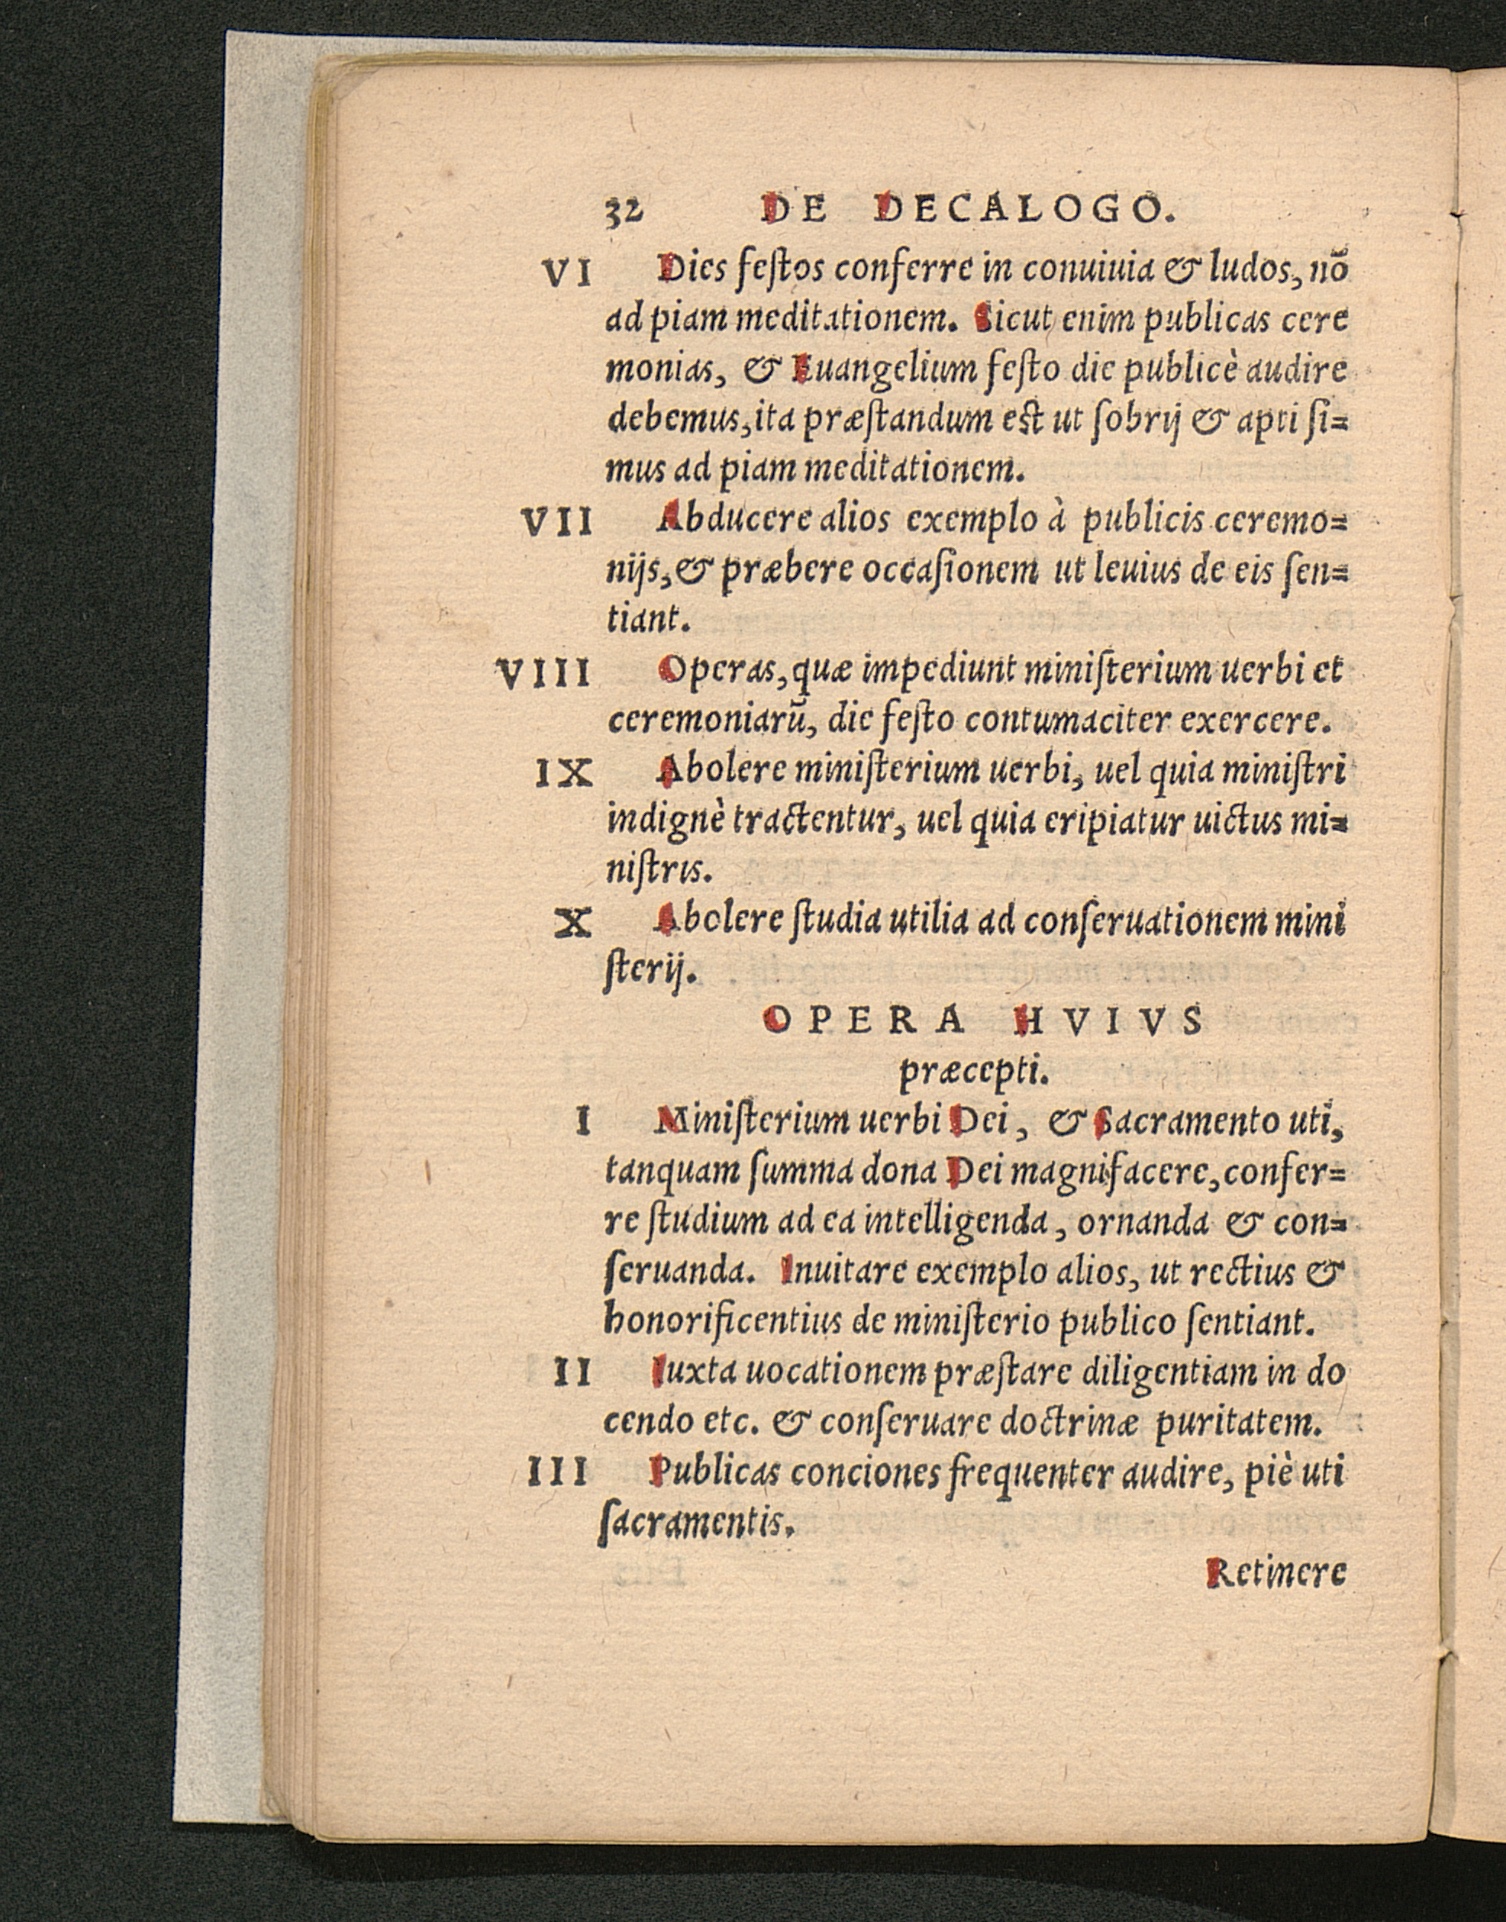 32 DE DECALOGO.
VI Dies feſtos conferre in conuiuia & ludos, nõ
ad piam meditationem. Sicut enim publicas cere
monias, & Euangelium feſto die publicè audire
debemus, ita præſtandum eſt ut ſobrij & apti ſi=
mus ad piam meditationem.
VII Abducere alios exemplo à publicis ceremo=
nijs, & præbere occaſionem ut leuius de eis ſen=
tiant.
VIII Operas, quæ impediunt miniſterium uerbi et
ceremoniarũ, die feſto contumaciter exercere.
IX Abolere miniſterium uerbi, uel quia miniſtri
indignè tractentur, uel quia eripiatur uictus mi=
niſtris.
X Abolere ſtudia utilia ad conſeruationem mini
ſterij.
OPERA HVIVS
præcepti.
I Miniſterium uerbi Dei, & Sacramento uti,
tanquam ſumma dona Dei magnifacere, confer=
re ſtudium ad ea intelligenda, ornanda & con=
ſeruanda. Inuitare exemplo alios, ut rectius &
honorificentius de miniſterio publico ſentiant.
II Iuxta uocationem præſtare diligentiam in do
cendo etc. & conſeruare doctrinæ puritatem.
III Publicas conciones frequenter audire, piè uti
ſacramentis.
Retinere